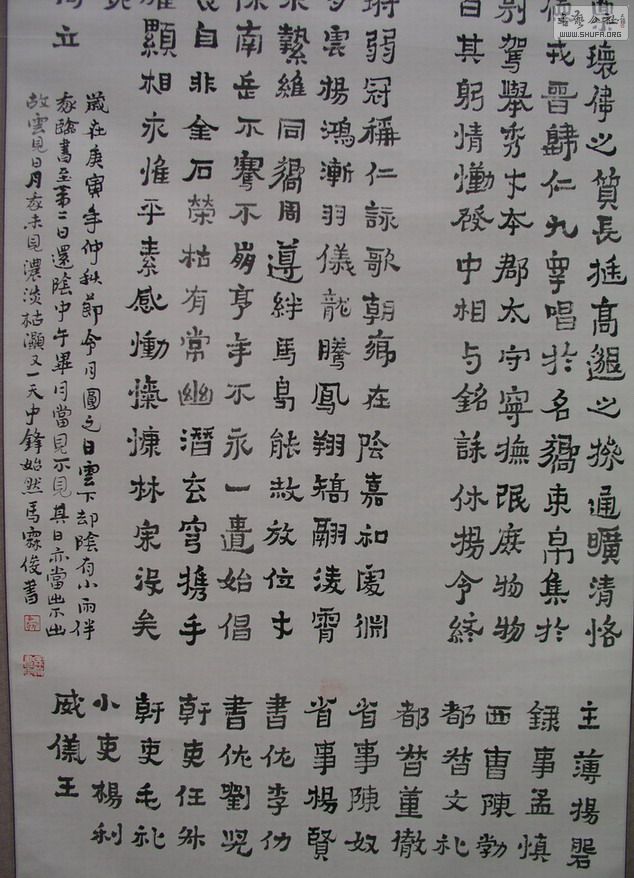 稟瓌偉之質長挺高邈之操通曠清恪
德戎晉歸仁九皋唱於名嚮束帛集於
別駕舉秀才本郡太守寧撫氓庶物物
百其躬情慟發中相与銘誄休揚令終
鏘弱冠稱仁詠歌朝鄉在陰嘉和處淵
与雲揚鴻漸羽儀龍騰鳳翔矯翮淩霄
來縶維同嚮周遵絆馬曷能赦放位才
保南岳不騫不崩享年不永一匱始倡
長自非金石榮枯有常幽潛玄穹攜手
雍顯相永惟平素感慟懆慷林宗沒矣
立
歲在庚寅年仲秋節令月圓之日雲下却陰有小雨伴
余臨書至第二日還陰中午畢月當見不見其日亦當出不出
故雲見日月余未見濃淡枯灝又一天中鋒始然馬霖俊書
主薄楊磐
錄事孟慎
西曹陳勃
都督文礼
都督董徹
省事陳奴
省事楊賢
書佐李仂
書佐劉兒
幹吏任升
幹吏毛礼
小吏楊利
威儀王
WWW.SHUFA.ORG